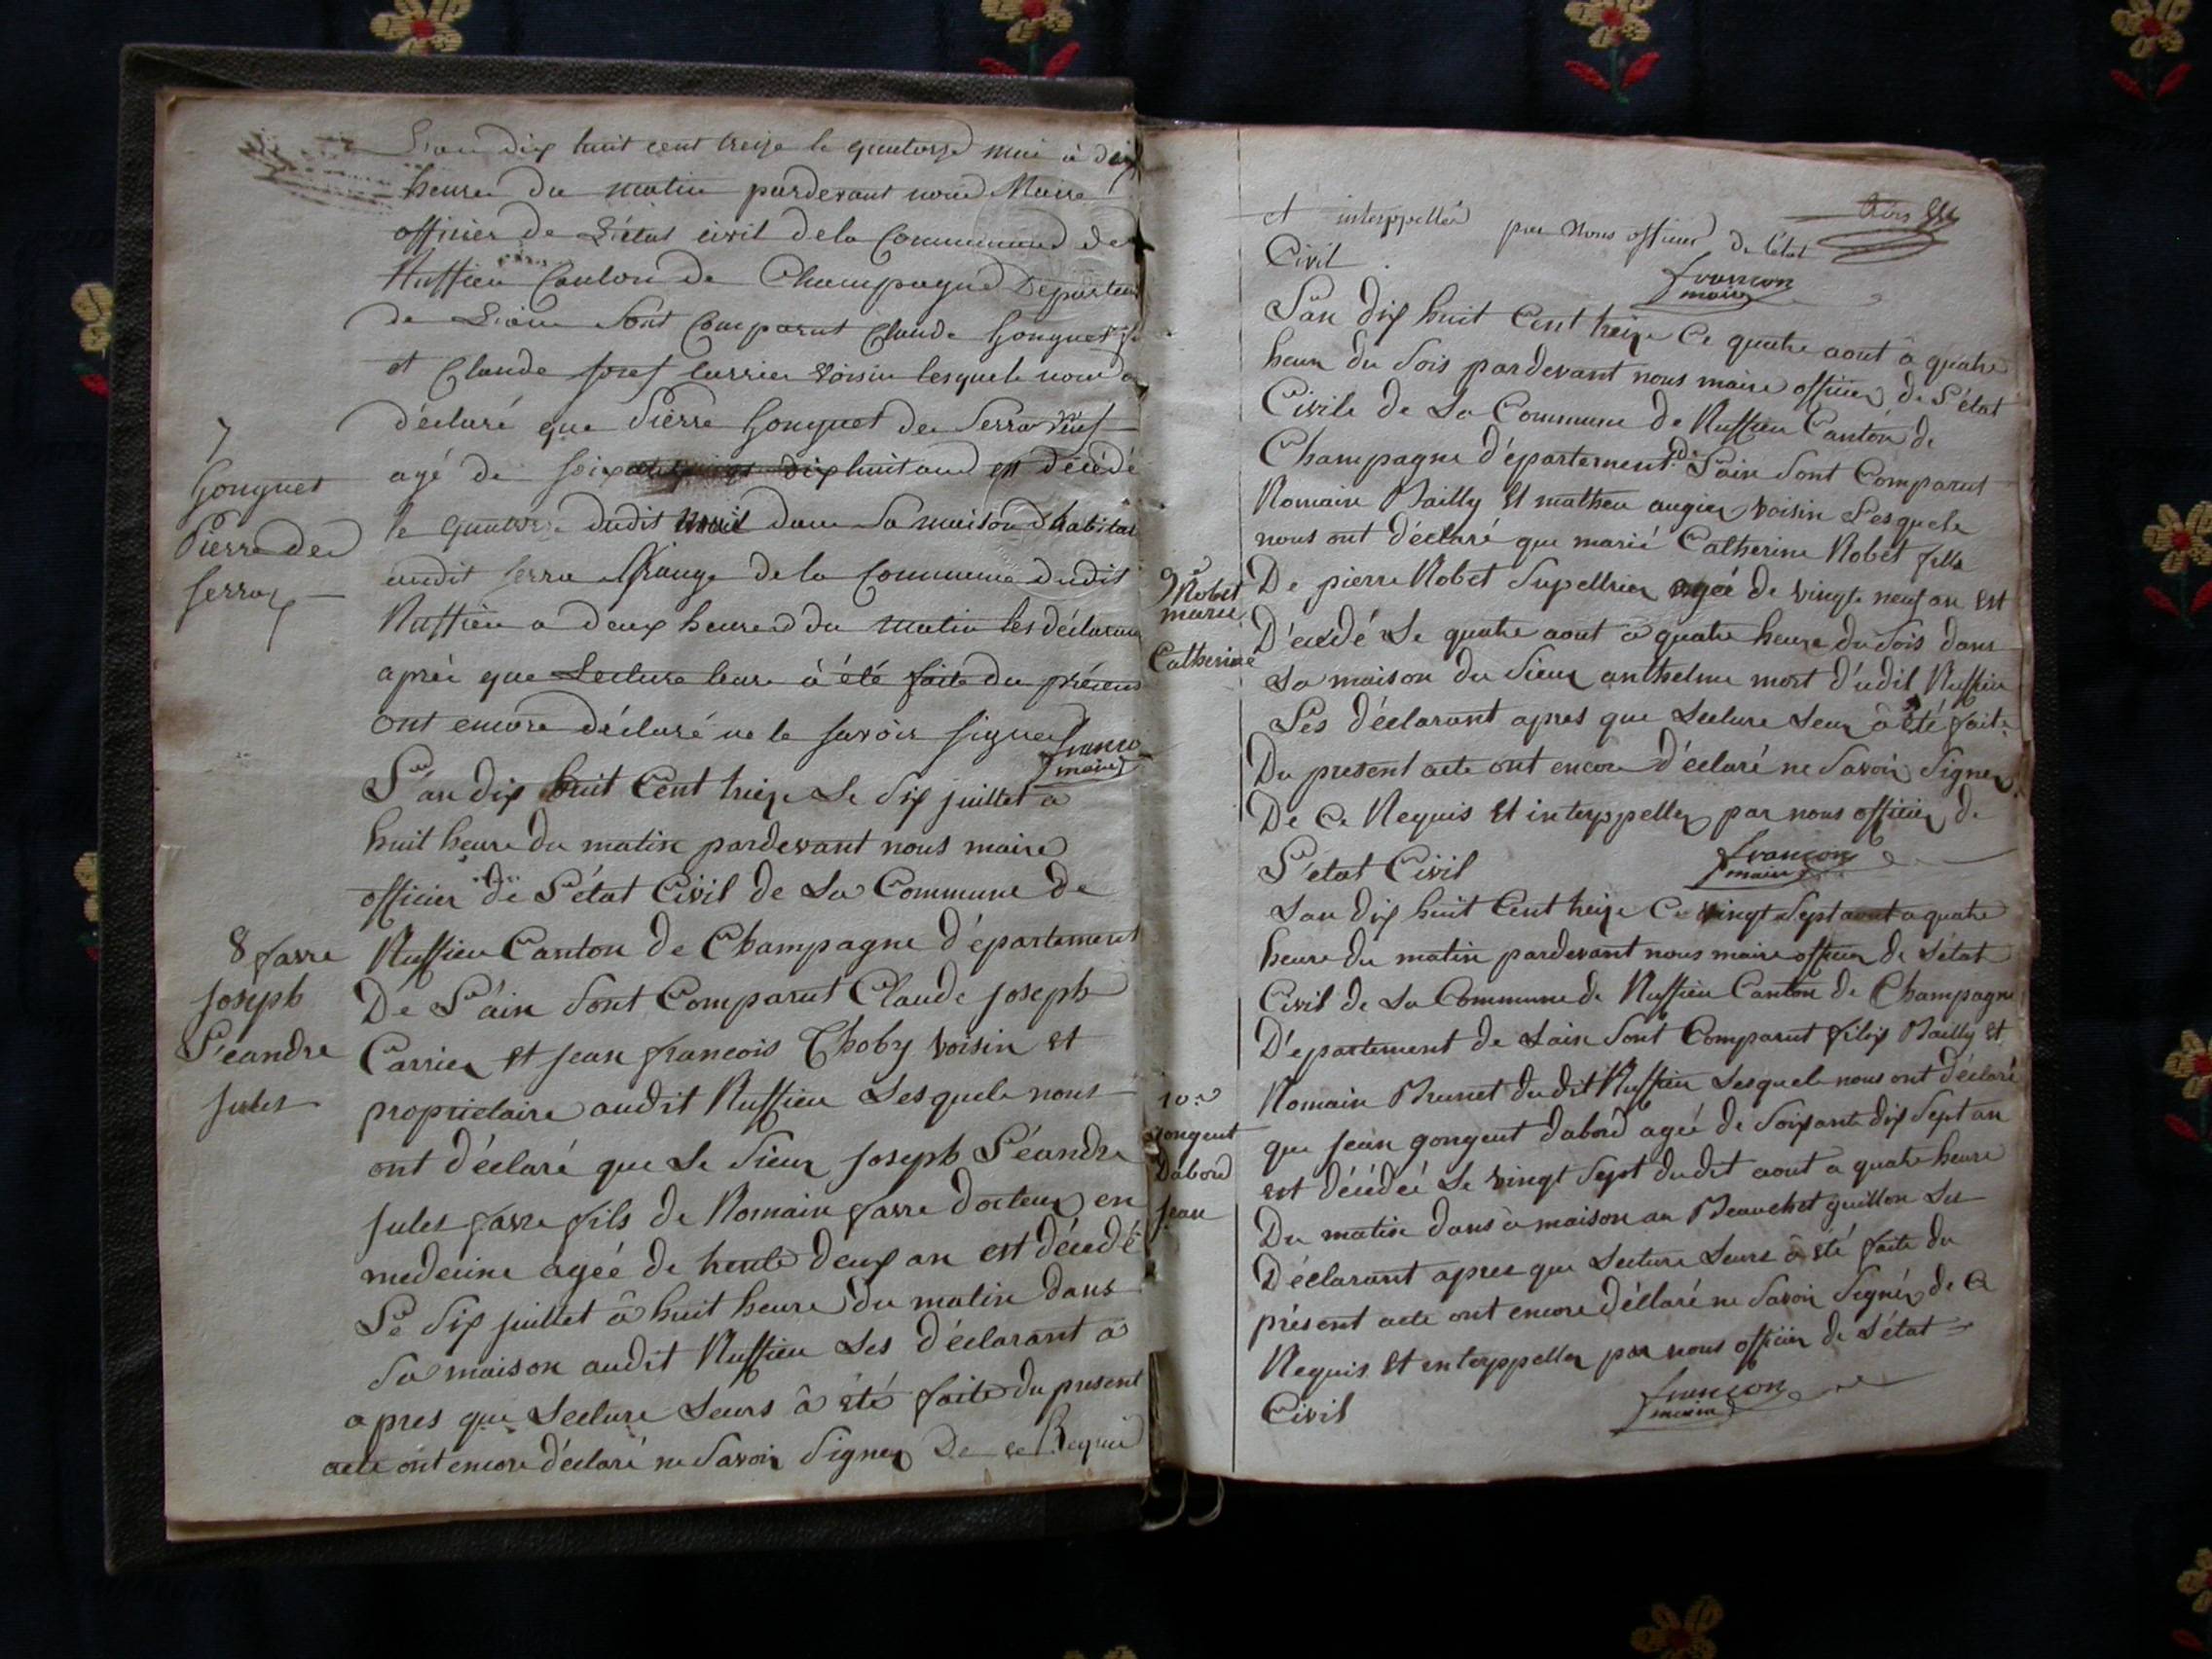 L'an dix huit cent treize le quatorze mai à dix
heures du matin pardevant nous Maire
officier de L'état civil de la Commune de
Ruffieu Canton de Champagne Departem
de L'ain sont Comparut Claude Gonguet
et Claude josef Carrier voisin lesquels nous
déclaré que Pierre Gonguet de Serra
agé de dix huit ans est décédé
le quatorze dudit dans sa maison d'habitat
audit Serra de la Commune dudit
Ruffieu a deux heures du matin les déclarans
aprés que Lecture leurs à été faite du présent
ont encore déclaré ne le savoir signer
françon
maire
7
Gonguet
Pierre de
Serra
L'an dix huit Cent treize Le dix juillet a
huit heure du matin pardevant nous maire
officier de L'état Civil de La Commune de
Ruffieu Canton de Champagne d'épartement
De L'ain sont Comparut Claude joseph
Carrier et jean francois Thoby voisin et
proprietaire audit Ruffieu Lesquels nous
ont d'éclaré que Le sieur joseph Léandre
jules favre fils de Romain favre docteur en
medecine agée de trente deux an est décedé
Le dix juillet â huit heure du matin dans
sa maison audit Ruffieu Les d'éclarant a
apres que Lecture Leurs â été faite du present
acte ont encore d'éclaré ne savoir signer De ce Requis
8 favre
joseph
Léandre
jules
et interppellés par Nous officier de l'état
Civil
françon
maire
L'an dix huit Cent treize Ce quatre aout â quatre
heur du soir pardevant nous maire officier de L'état
Civile de La Commune de Ruffieu Canton de
Champagne d'épartement de L'ain sont Comparut
Romain Bailly et matheu augier voisin Lesquels
nous ont d'éclaré que marié Catherine Robet fille
De pierre Robet Supellrier agée de vingt neuf an est
D'écédé Le quatre aout a quatre heure du soir dans
La maison du sieur anthelme mort d'udit Ruffieu
Les d'éclarant apres que Lecture Leur â été faite
Du present acte ont encore d'éclaré ne savoir signer
De Ce Requis et interppeller par nous officier de
L'état Civil
françon
maire
9
Robet
marie
Catherine
Lan dix huit Cent treize Ce vingt sept aout a quatre
heure du matin pardevant nous maire officier de L'état
Civil de La Commune de Ruffieu Canton de Champagne
D'epartement de Lain sont Comparut filix Bailly et
Romain Brunet dudit Ruffieu Lesquels nous ont d'éclaré
que jean gongeut dabord agée de soixante dix sept an
est décédée Le vingt sept dudit aout a quatre heure
Du matin dans a maison au Beauchet guillon Les
Déclarant apres que Lecture Leurs â été faite du
présent acte ont encore déclaré ne savoir signér de Ce
Requis et interppeller par nous officier de L'état
Civil
françon
maire
10
gongeut
Dabord
jean